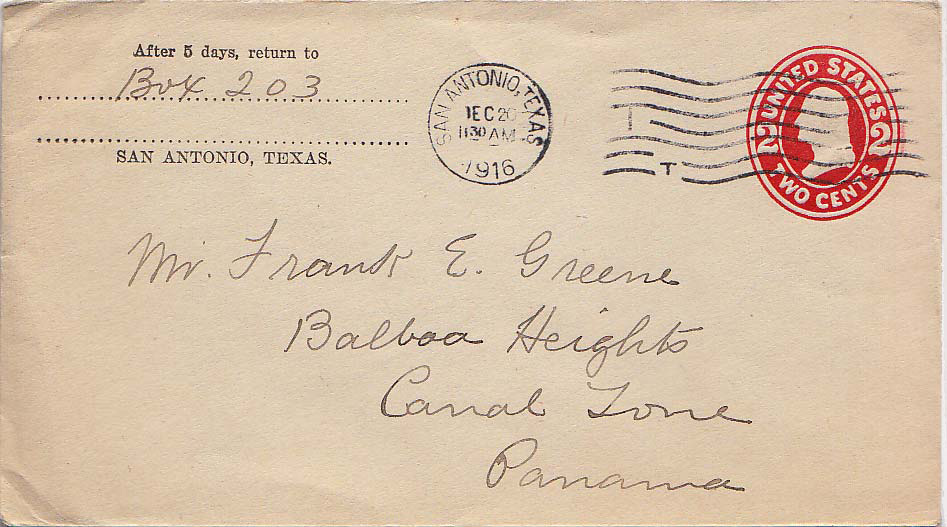 After 5 days, return to
Box 203
SAN ANTONIO, TEXAS.
SAN ANTONIO, TEXAS
DEC 20
1130 AM
1916
T
UNITED STATES
2 2
TWO CENTS
Mr. Frank E. Greene
Balboa Heights
Canal Zone
Panama